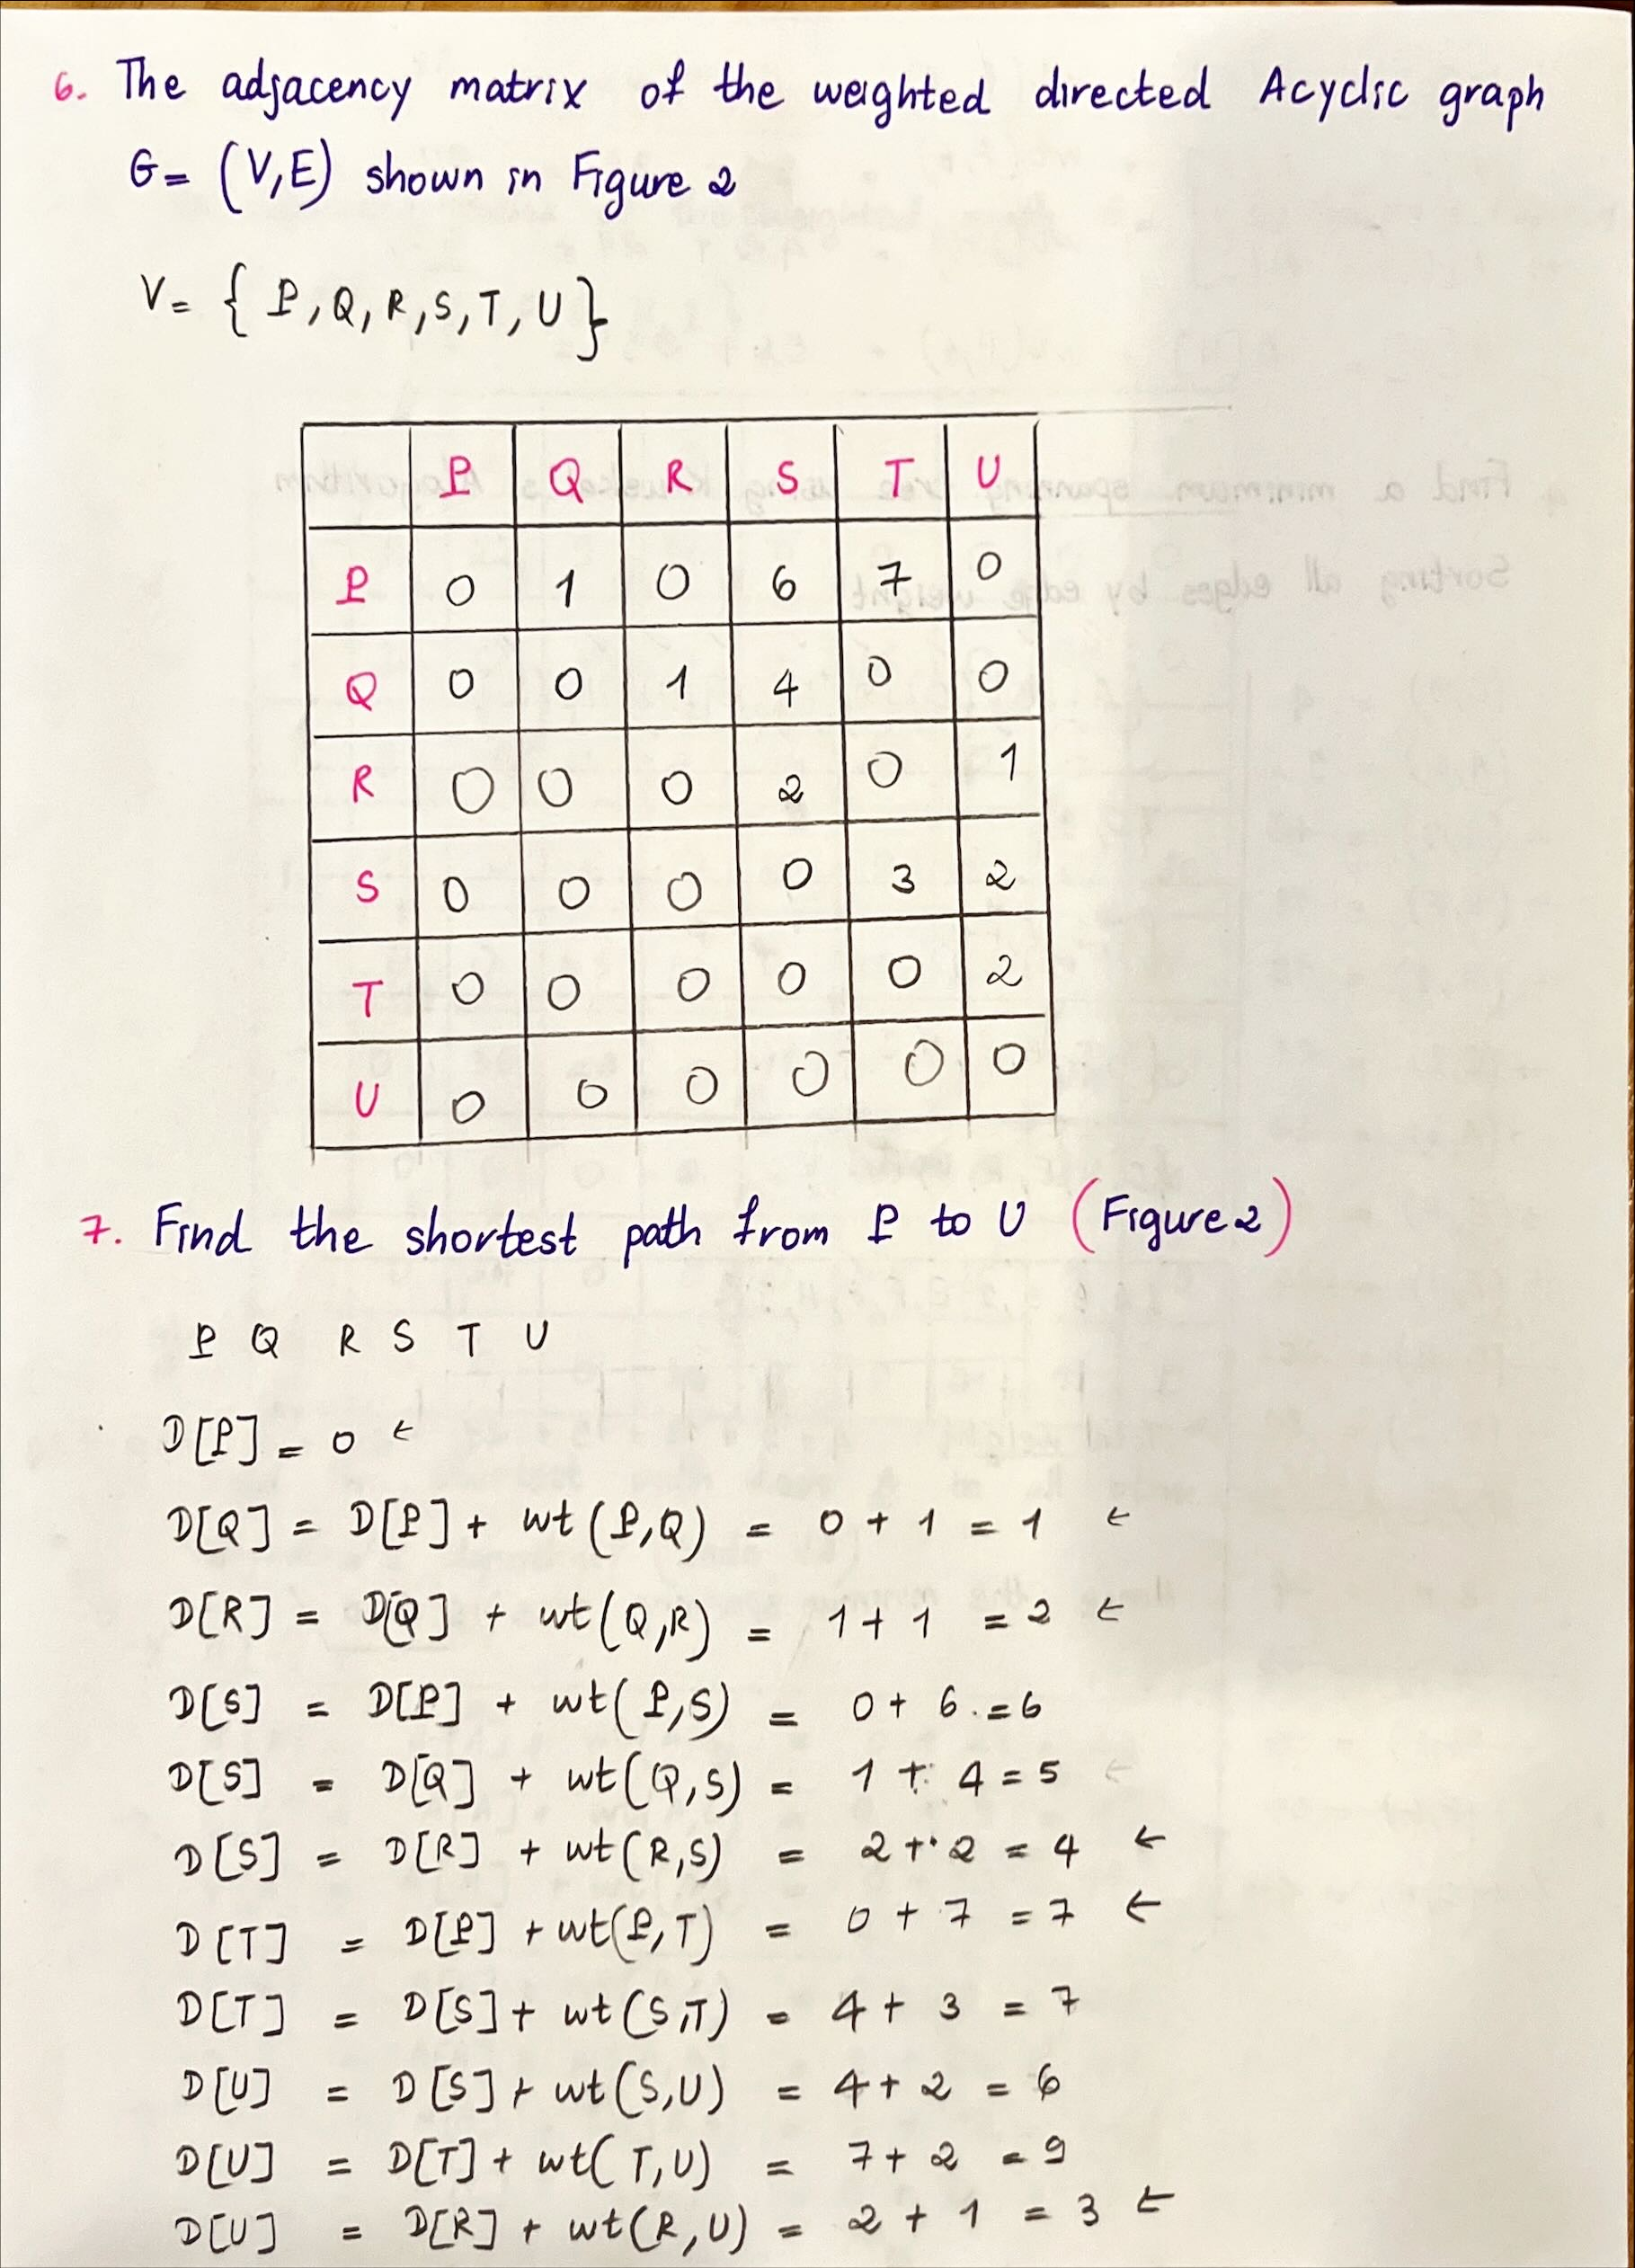 6. The adjacency matrix of the weighted directed Acyclic graph
G= (V,E) shown in Figure 2
V= { P, Q, R, S, T, U }
P Q R S T U
P 0 1 0 6 7 0
Q 0 0 1 4 0 0
R 0 0 0 2 0 1
S 0 0 0 0 3 2
T 0 0 0 0 0 2
U 0 0 0 0 0 0
7. Find the shortest path from P to U (Figure 2)
P Q R S T U
D[P] = 0 ←
D[Q] = D[P] + wt (P,Q) = 0 + 1 = 1 ←
D[R] = D[Q] + wt (Q,R) = 1 + 1 = 2 ←
D[S] = D[P] + wt( P,S) = 0 + 6 = 6
D[S] = D[Q] + wt(Q,S) = 1 + 4 = 5 ←
D[S] = D[R] + wt(R,S) = 2 + 2 = 4 ←
D[T] = D[P] + wt(P,T) = 0 + 7 = 7 ←
D[T] = D[S] + wt(S,T) = 4 + 3 = 7
D[U] = D[S] + wt(S,U) = 4 + 2 = 6
D[U] = D[T] + wt( T,U) = 7 + 2 = 9
D[U] = D[R] + wt(R,U) = 2 + 1 = 3 ←